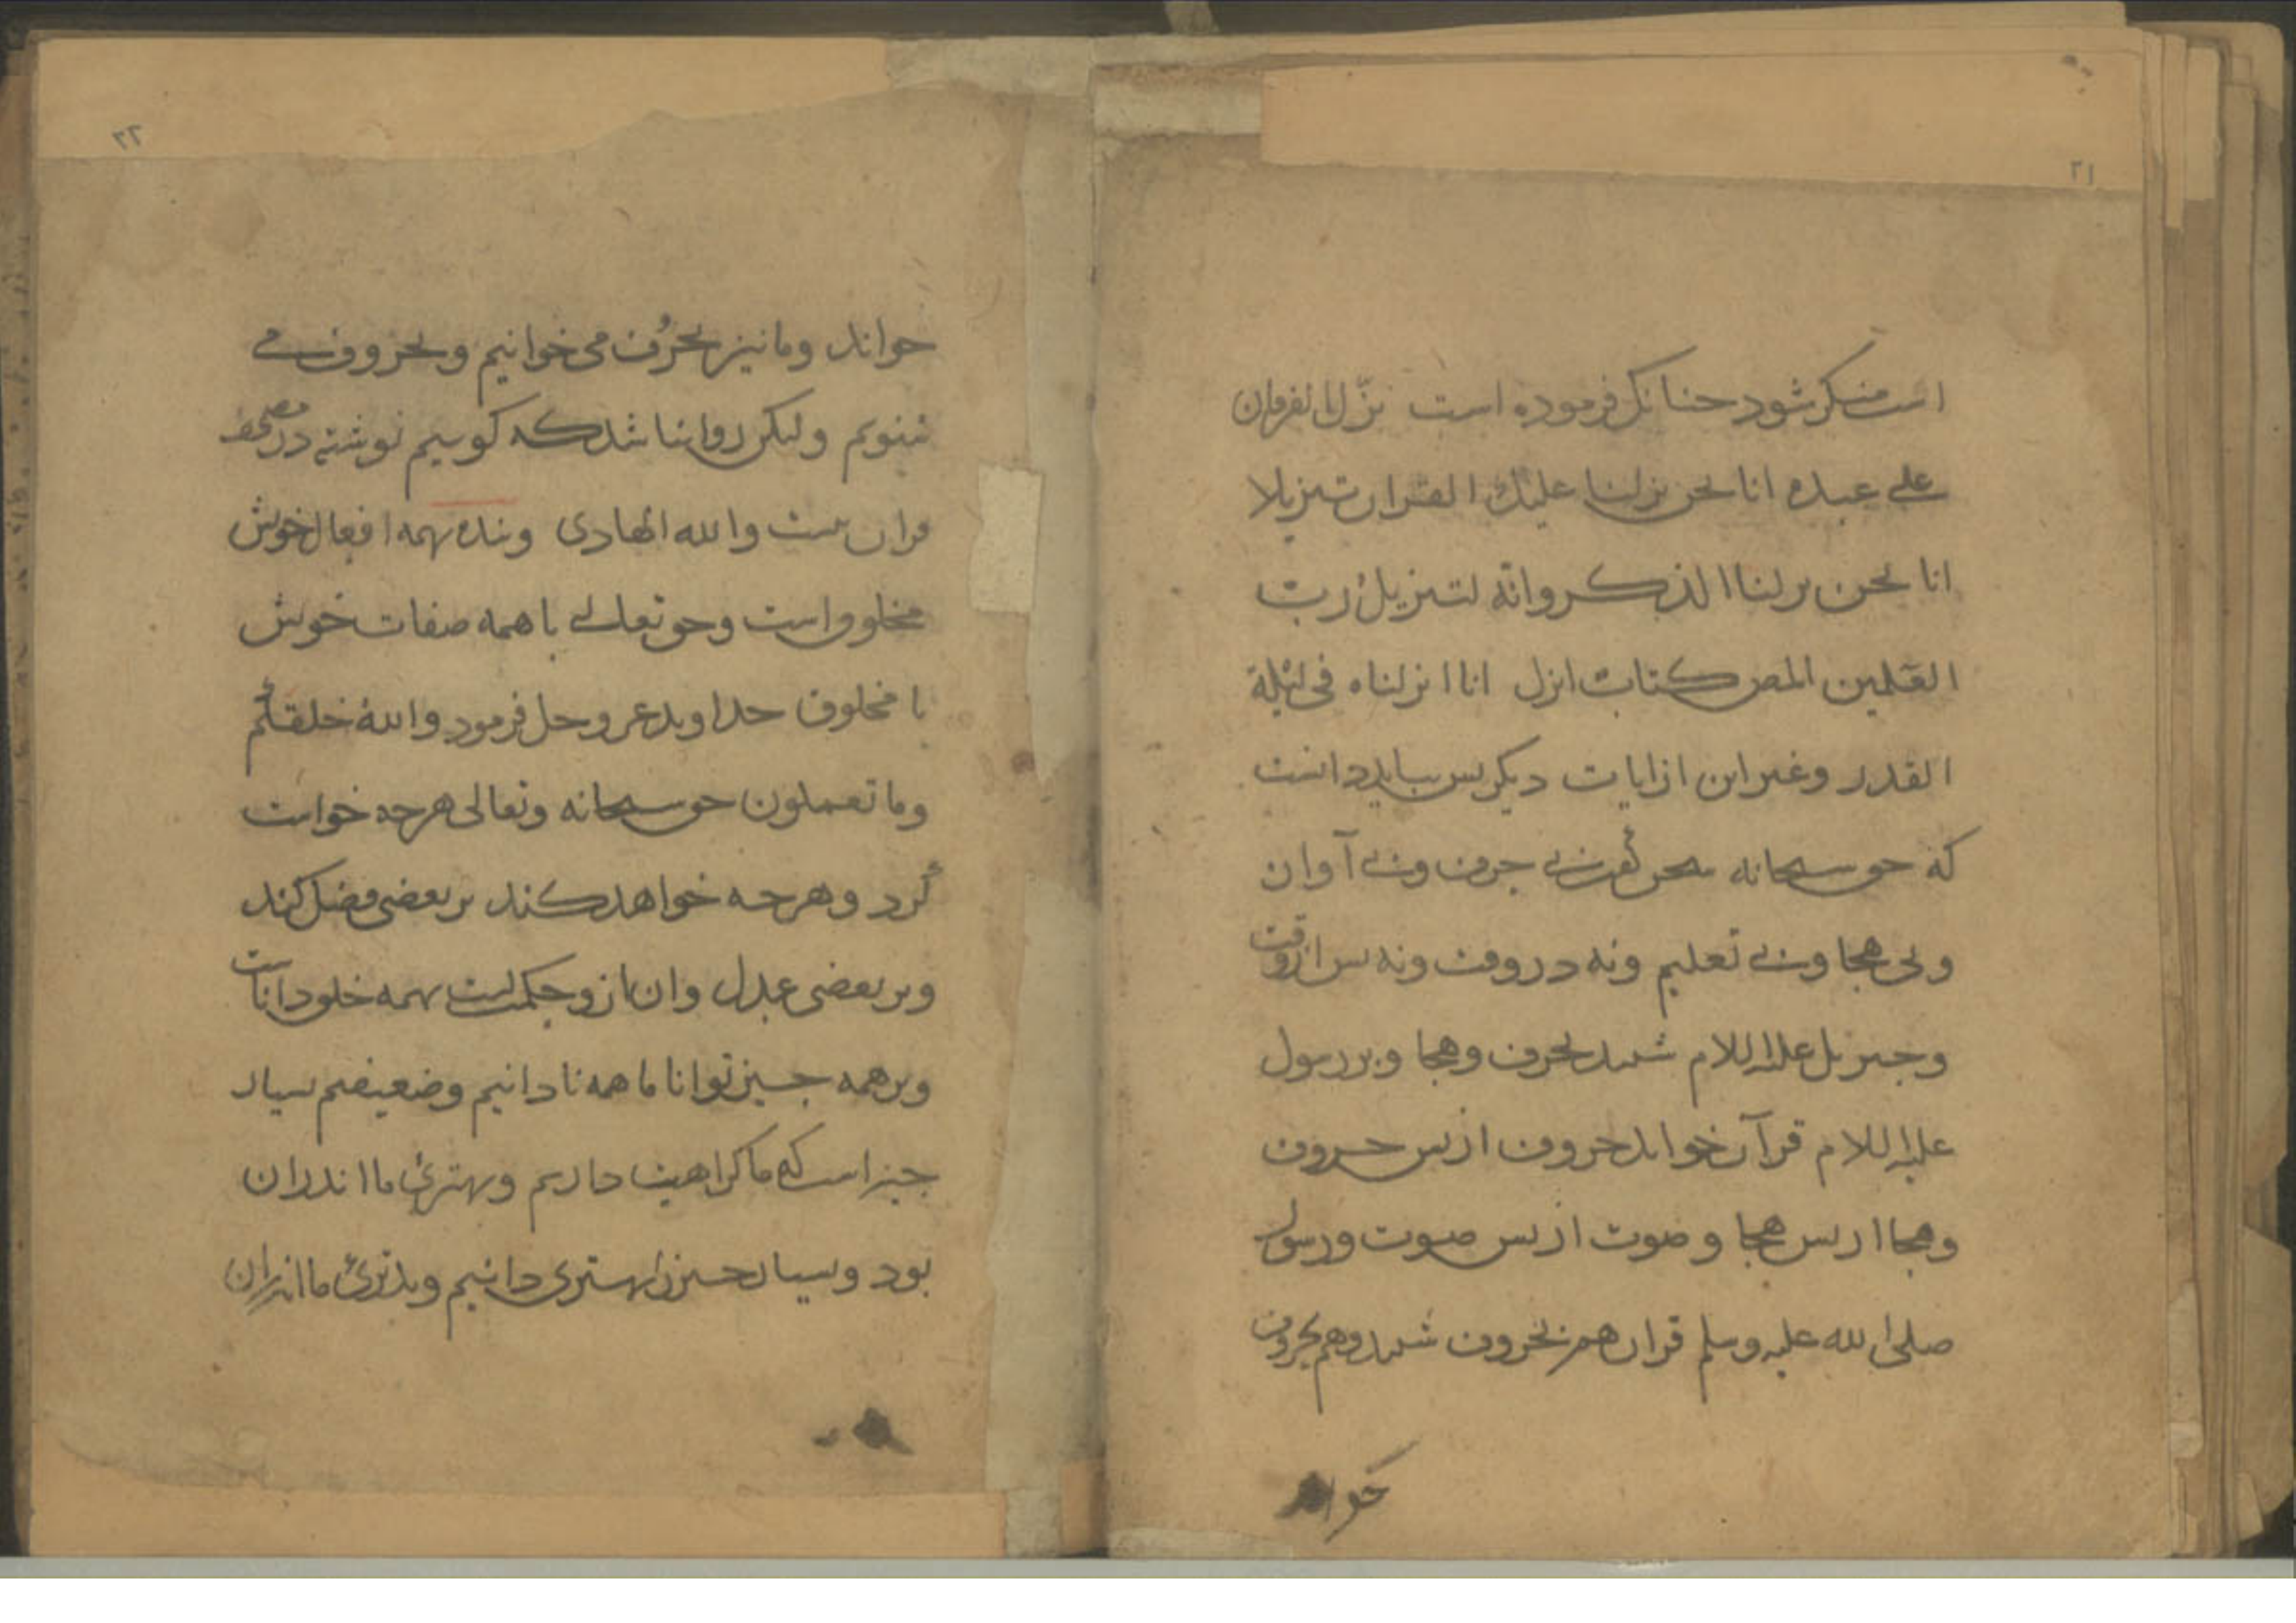 ۲۱
است منکر شود حنانک فرموده است نزّل الفرقان
علی عبده انا نحن نزلنا علیک القران تنزیلا
انا نحن نزلنا الذکر وانّه لتنزیل رب
العٰلمین المص کتاب انزل انا انزلناه فی لیلة
القدر وغیر این از ایات دیکر بس بباید دانست
که حق سبحانه سخن گفت بی حرف وبی آوان
وبی هجا وبی تعلیم ونه در وقت ونه بس از وقت
وجبریل علیه السلام شنید بحرف وهجا وبر رسول
علیه السلام قرآن خواند حروف از بس حروف
وهجا از بس هجا وصوت از بس صوت ورسول
صلی الله علیه وسلم قران هم بحروف شنید وهم بحروف
خواند
۲۲
خواند وما نیز بحرُوف می خوانیم وبحروف می
شنویم ولیکن روا نباشد که کوییم نوشته در مصحف
قران نیست والله الهادی وبنده بهمه افعال خویش
مخلوق است وحق تعالی با همه صفات خویش
نا مخلوق خداوند عز وجل فرمود والله خلقکم
وما تعملون حق سبحانه وتعالی هرچه خواست
کرد وهرچه خواهد کند بر بعضی فضل کند
وبر بعضی عدل وان ازو حکمتست بهمه خلق داناست
وبر همه چیز توانا ما همه نادانیم وضعیفیم بسیار
چیز است که ما کراهیت داریم وبهتری ما اندران
بود وبسیار چیز را بهتری دانیم وبدتری ما اندران